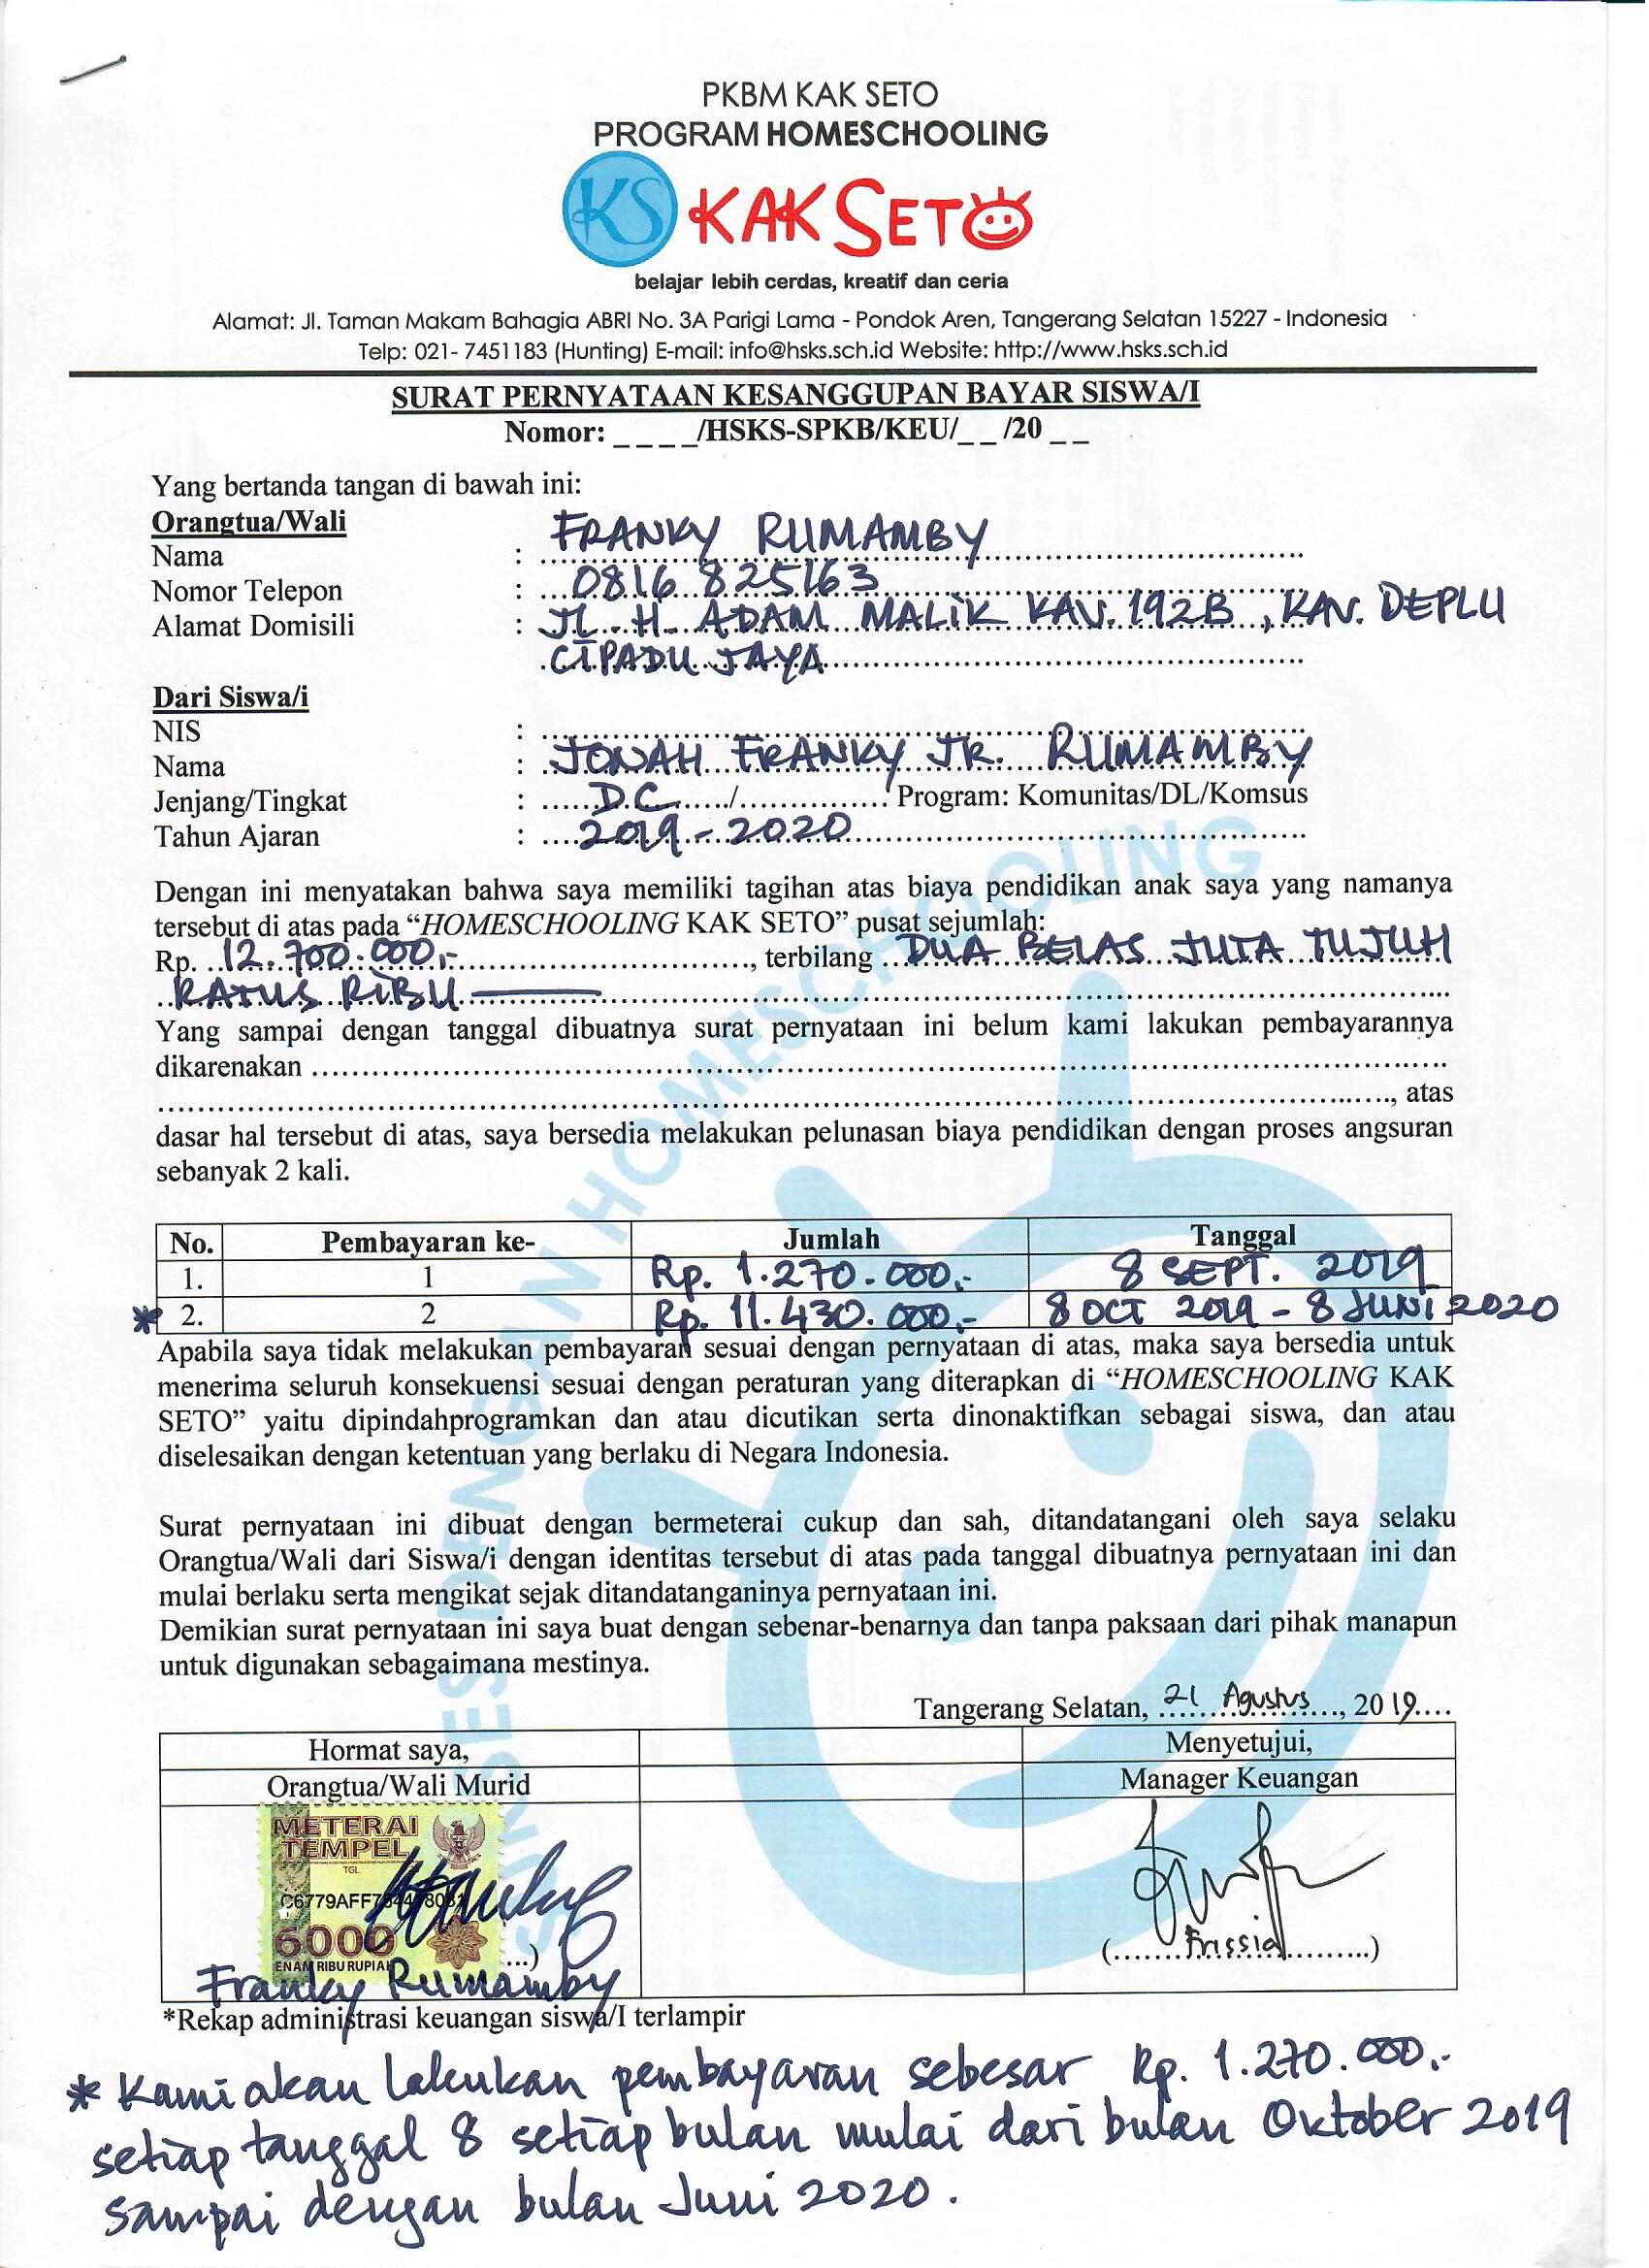 PKBM KAK SETO
PROGRAM HOMESCHOOLING
KS KAK SETO
belajar lebih cerdas, kreatif dan ceria
Alamat: Jl. Taman Makam Bahagia ABRI No. 3A Parigi Lama - Pondok Aren, Tangerang Selatan 15227 - Indonesia
Telp: 021- 7451183 (Hunting) E-mail: info@hsks.sch.id Website: http://www.hsks.sch.id
SURAT PERNYATAAN KESANGGUPAN BAYAR SISWA/I
Nomor: _ _ _ _/HSKS-SPKB/KEU/_ _ /20 _ _
Yang bertanda tangan di bawah ini:
Orangtua/Wali
Nama : FRANKY RUMAMBY
Nomor Telepon : 0816 825163
Alamat Domisili : JL. H. ADAM MALIK KAV. 192B, KAV. DEPLU
CIPADU JAYA
Dari Siswa/i
NIS :
Nama : JONAH FRANKY JR. RUMAMBY
Jenjang/Tingkat : DC / Program: Komunitas/DL/Komsus
Tahun Ajaran : 2019 - 2020
Dengan ini menyatakan bahwa saya memiliki tagihan atas biaya pendidikan anak saya yang namanya
tersebut di atas pada “HOMESCHOOLING KAK SETO” pusat sejumlah:
Rp. 12.700.000,- , terbilang DUA BELAS JUTA TUJUH
RATUS RIBU
Yang sampai dengan tanggal dibuatnya surat pernyataan ini belum kami lakukan pembayarannya
dikarenakan
, atas
dasar hal tersebut di atas, saya bersedia melakukan pelunasan biaya pendidikan dengan proses angsuran
sebanyak 2 kali.
No. Pembayaran ke- Jumlah Tanggal
1. 1 Rp. 1.270.000,- 8 SEPT. 2019
* 2. 2 Rp. 11.430.000,- 8 OCT 2019 - 8 JUNI 2020
Apabila saya tidak melakukan pembayaran sesuai dengan pernyataan di atas, maka saya bersedia untuk
menerima seluruh konsekuensi sesuai dengan peraturan yang diterapkan di “HOMESCHOOLING KAK
SETO” yaitu dipindahprogramkan dan atau dicutikan serta dinonaktifkan sebagai siswa, dan atau
diselesaikan dengan ketentuan yang berlaku di Negara Indonesia.
Surat pernyataan ini dibuat dengan bermeterai cukup dan sah, ditandatangani oleh saya selaku
Orangtua/Wali dari Siswa/i dengan identitas tersebut di atas pada tanggal dibuatnya pernyataan ini dan
mulai berlaku serta mengikat sejak ditandatanganinya pernyataan ini.
Demikian surat pernyataan ini saya buat dengan sebenar-benarnya dan tanpa paksaan dari pihak manapun
untuk digunakan sebagaimana mestinya.
Tangerang Selatan, 21 Agustus, 2019
Hormat saya, Menyetujui,
Orangtua/Wali Murid Manager Keuangan
METERAI
TEMPEL
TGL
6000
ENAM RIBU RUPIAH
(Frissia)
Franky Rumamby
*Rekap administrasi keuangan siswa/I terlampir
* Kami akan lakukan pembayaran sebesar Rp. 1.270.000,-
setiap tanggal 8 setiap bulan mulai dari bulan Oktober 2019
sampai dengan bulan Juni 2020.
SUKSES DENGAN HOMESCHOOLING